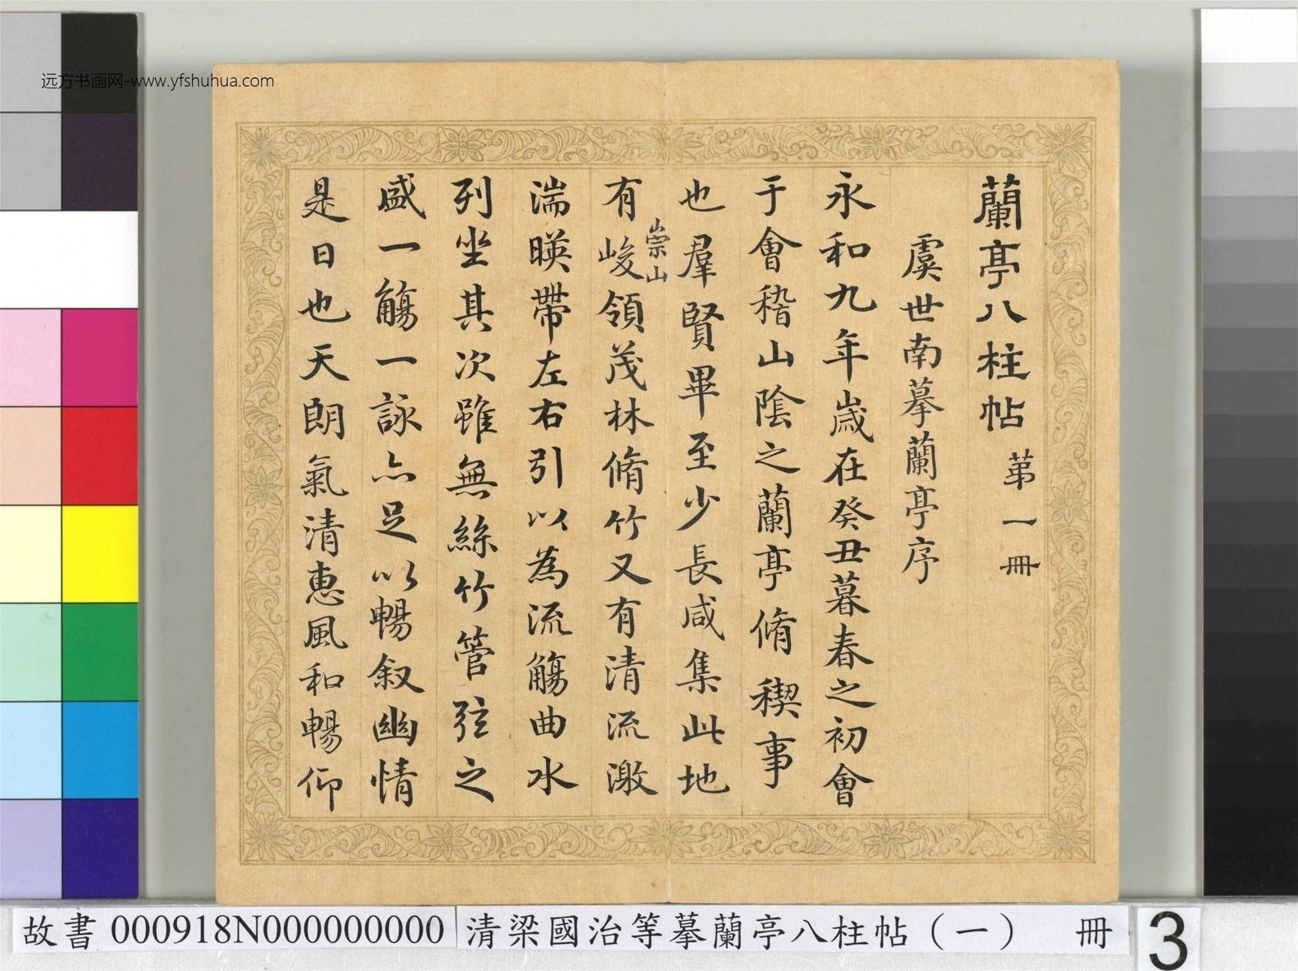 远方书画网-www.yfshuhua.com
蘭亭八柱帖 第一冊
虞世南摹蘭亭序
永和九年歲在癸丑暮春之初會
于會稽山陰之蘭亭脩稧事
也羣賢畢至少長咸集此地
有崇山峻領茂林脩竹又有清流激
湍暎帶左右引以為流觴曲水
列坐其次雖無絲竹管弦之
盛一觴一詠亦足以暢叙幽情
是日也天朗氣清惠風和暢仰
故書 000918N000000000 清梁國治等摹蘭亭八柱帖（一） 冊 3